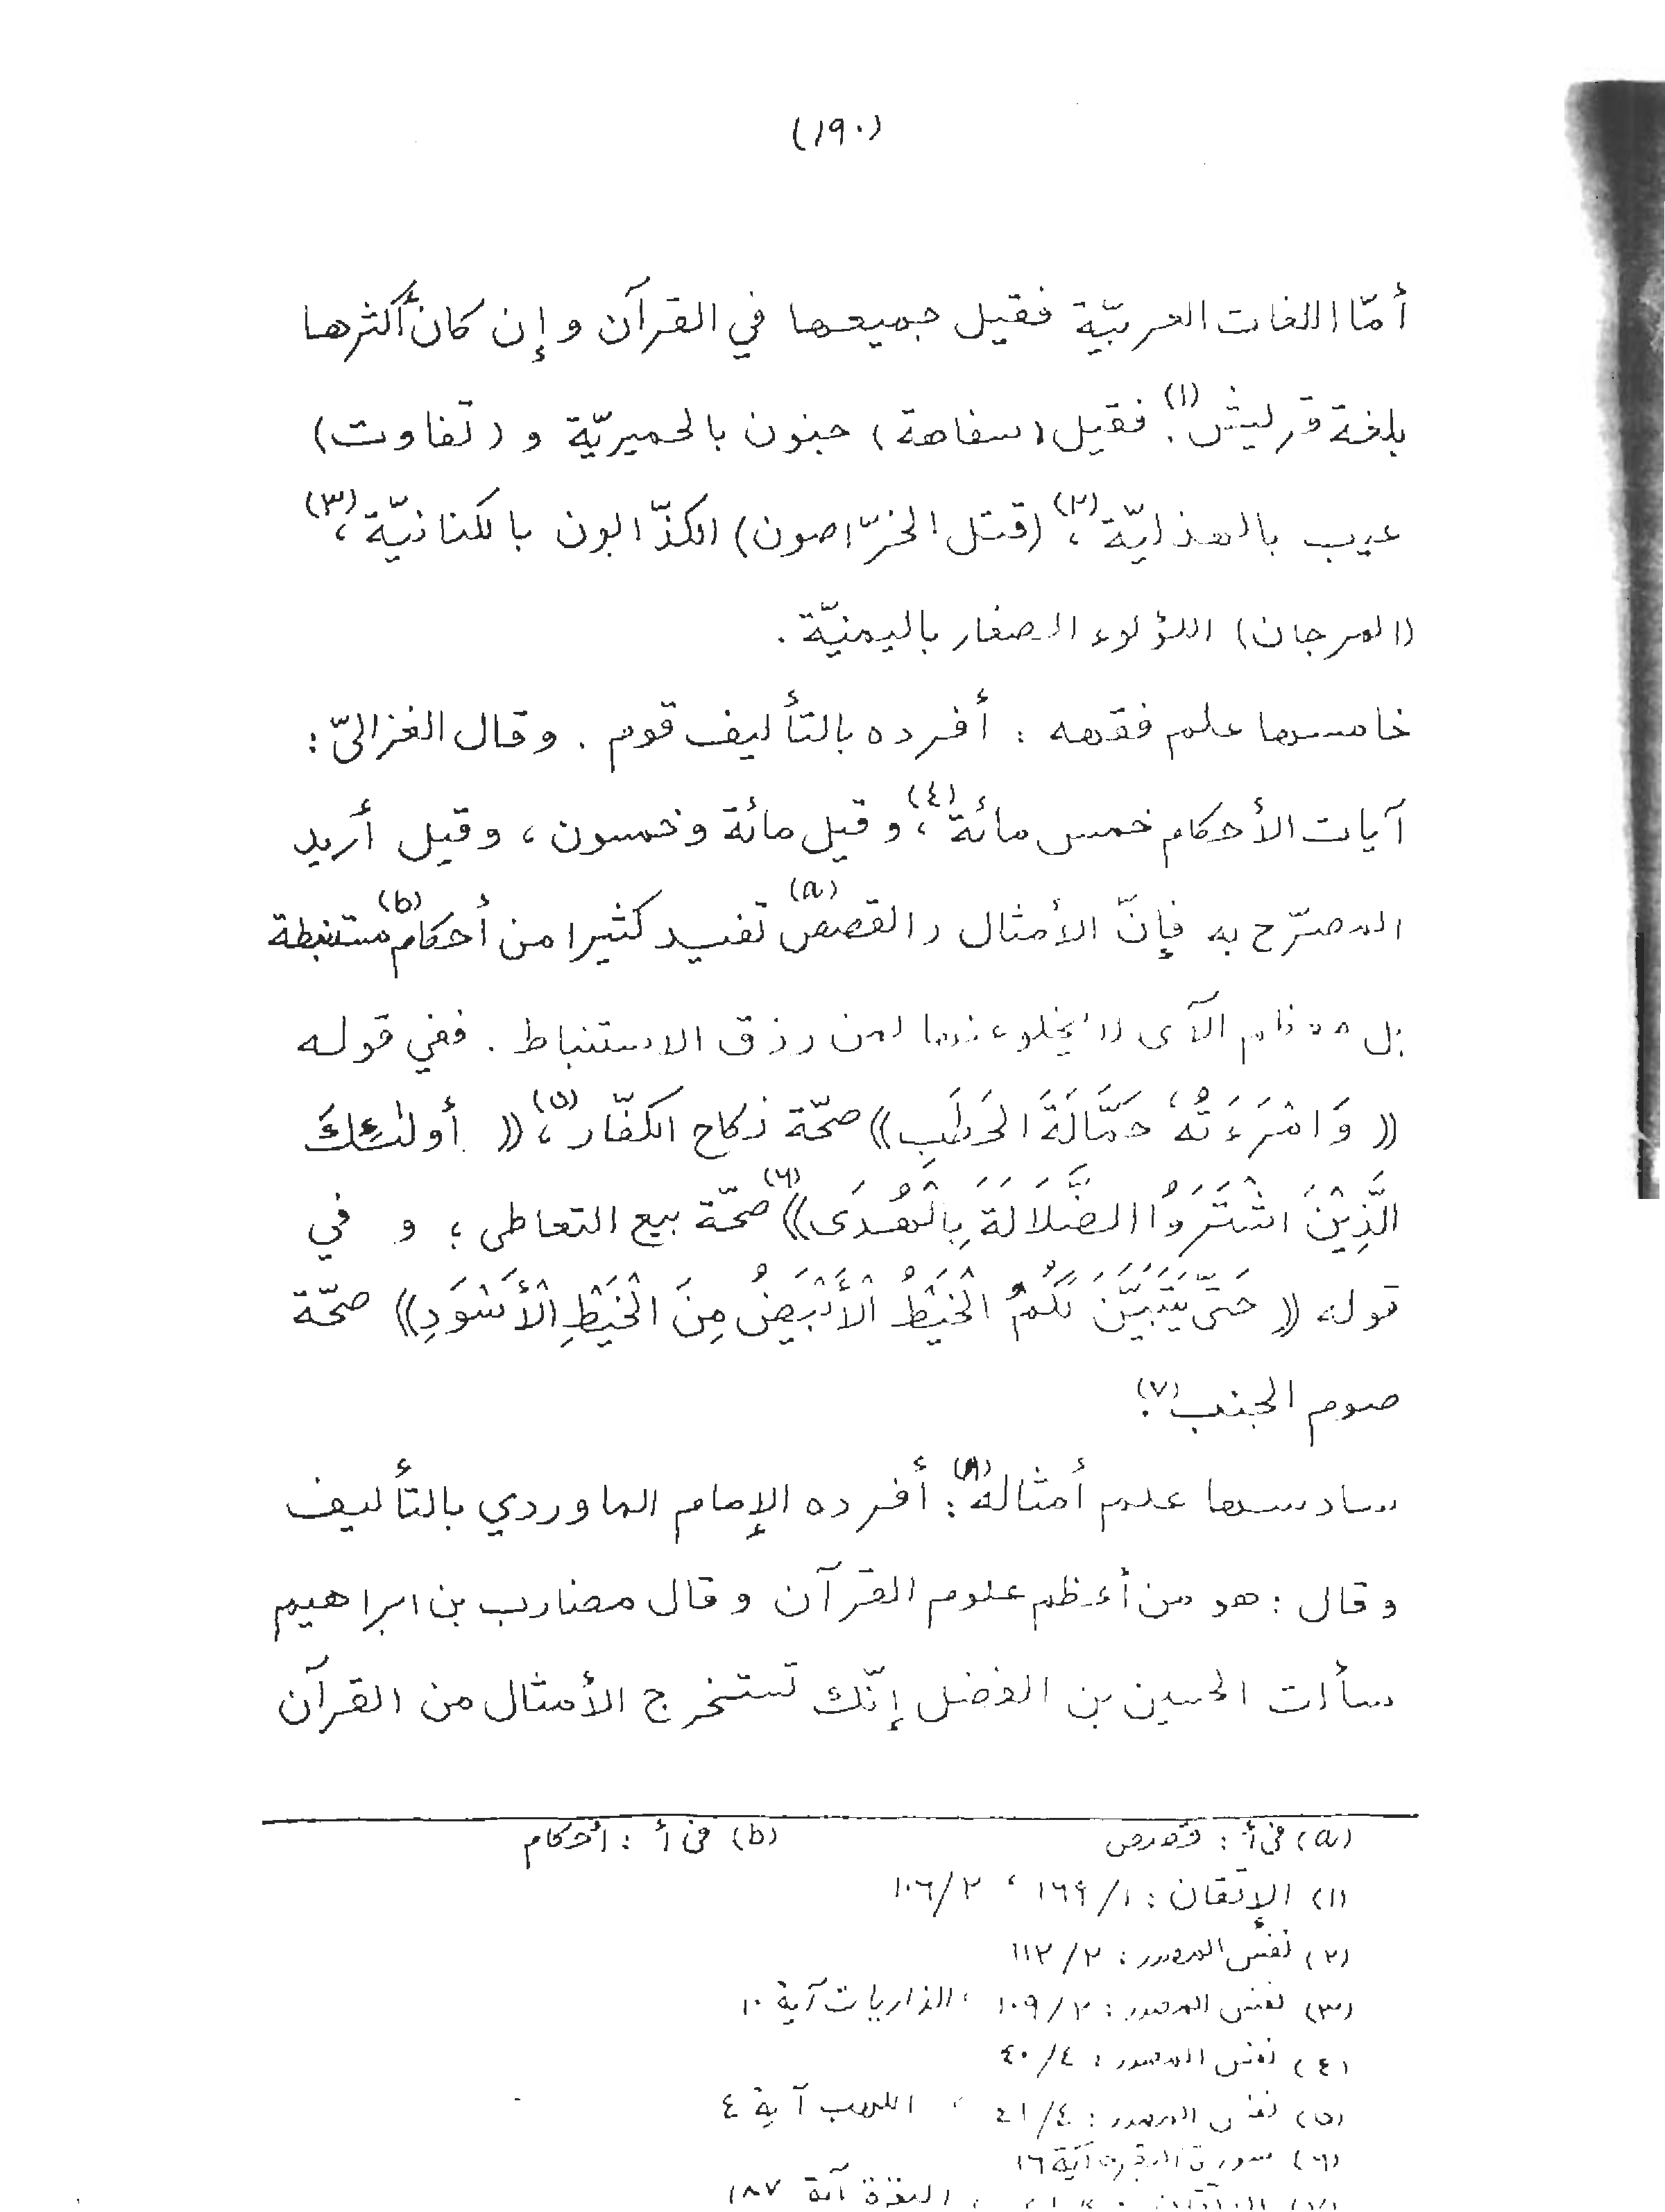 (١٩٠)
أمّا اللغات العربيّة فقيل جميعها في القرآن وإن كان أكثرها
بلغة قريش(١). فقيل (سفاهة) جنون بالحميريّة و (تفاوت)
عيب بالهذليّة(٢)، (قتل الخرّاصون) الكذّابون بالكنانيّة(٣)،
(المرجان) اللؤلوء الصغار باليمنيّة .
خامسها علم فقهه : أفرده بالتأليف قوم . وقال الغزاليّ :
آيات الأحكام خمس مائة(٤)، وقيل مائة وخمسون ، وقيل أريد
المصرّح به فإنّ الأمثال والقصص(a) تفيد كثيرا من أحكام(b) مستنبطة
بل معظم الآى لا يخلو عنها لمن رزق الاستنباط . ففي قوله
《 وَامْرَءَتُهُ حَمَّالَةَ الحَطَبِ》 صحّة نكاح الكفّار(٥)، 《 أولٰئِكَ
الَّذِيْنَ اشْتَرَوُا الضَّلَالَةَ بِالْهُدَى》(٦) صحّة بيع التعاطى ؛ و في
قوله 《 حَتَّى يَتَبَيَّنَ لَكُمُ الْخَيْطُ الْأَبْيَضُ مِنَ الْخَيْطِ الْأَسْوَدِ》 صحّة
صوم الجنب(٧).
سادسها علم أمثاله(٨): أفرده الإمام الماوردي بالتأليف
وقال : هو من أعظم علوم القرآن وقال مضارب بن ابراهيم
سألت الحسين بن الفضل إنّك تستخرج الأمثال من القرآن
(a) فى أ : قصص (b) فى أ : أحكام
(١) الإتقان : ١/١٦٩ ، ٢/١٠٦
(٢) نفس المصدر : ٢/١١٢
(٣) نفس المصدر : ٢/١٠٩ ، الذاريات آية ١٠
(٤) نفس المصدر : ٤/٤٠
(٥) نفس المصدر : ٤/٤١ ، اللهب آية ٤
(٦) سورة البقرة آية ١٦
(٧) البقرة آية ١٨٧